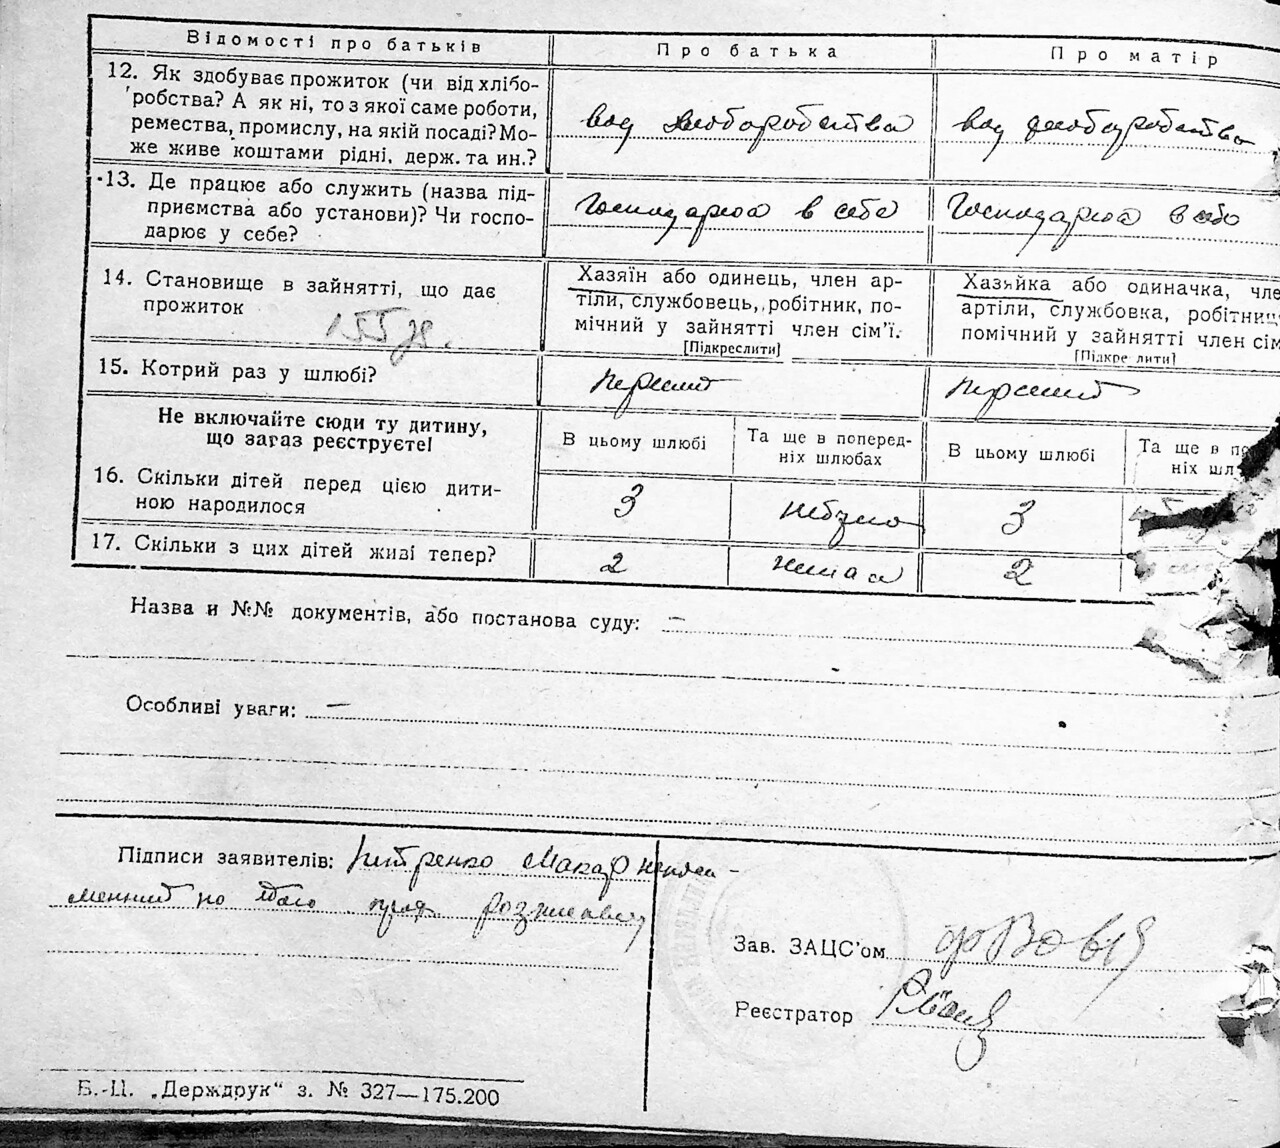 Відомості про батьків
Про батька
Про матір
12. Як здобуває прожиток (чи від хлібо-
робства? А як ні, то з якої саме роботи,
ремества, промислу, на якій посаді? Мо-
же живе коштами рідні, держ. та ин.?
вод хлоборобства
вод хлоборобства
13. Де працює або служить (назва під-
приємства або установи)? Чи госпо-
дарює у себе?
Господарюа в себе
Господарюа в себе
14. Становище в зайнятті, що дає
прожиток
155
Хазяїн або одинець, член ар-
тіли, службовець, робітник, по-
мічний у зайнятті член сім'ї.
[Підкреслити]
Хазяйка або одиначка, чле
артіли, службовка, робітниц
помічний у зайнятті член сім
[Підкре лити]
15. Котрий раз у шлюбі?
первий
первий
Не включайте сюди ту дитину,
що загаз реєструєте!
В цьому шлюбі
Та ще в поперед-
ніх шлюбах
В цьому шлюбі
Та ще в по
ніх шл
16. Скільки дітей перед цією дити-
ною народилося
3
небуло
3
17. Скільки з цих дітей живі тепер?
2
немає
2
Назва и №№ документів, або постанова суду: —
Особливі уваги: —
Підписи заявителів: Питренко Макар непись-
менний по його
Зав. ЗАЦС'ом
Реєстратор
Б.-Ц. „Держдрук“ з. № 327—175.200